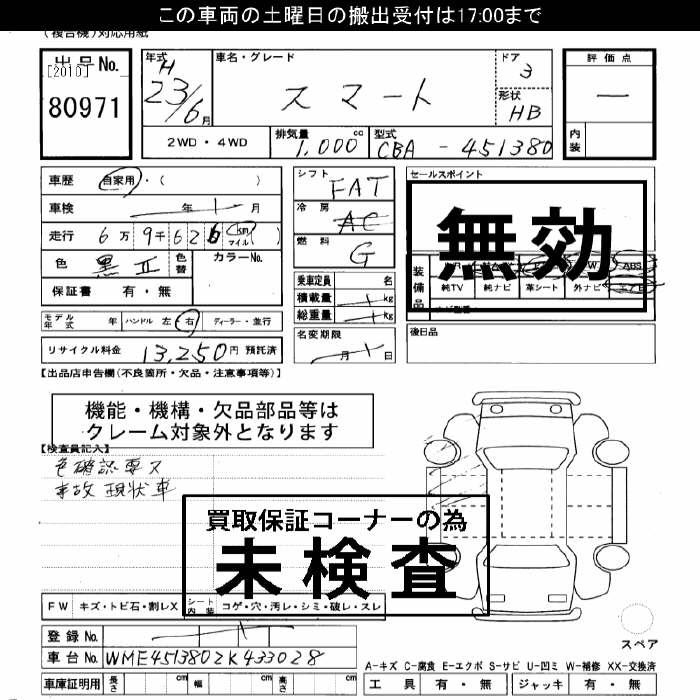 この車両の土曜日の搬出受付は17:00まで
(複合機)対応用紙
出品No.
[2010]
80971
年式 H 23/6月
車名・グレード
スマート
ドア 3
形状 HB
評価点
内装
2WD・4WD
排気量 1,000 cc
型式 CBA - 451380
車歴 自家用・( )
車検 年 月
走行 6万9千626 km マイル ( )
色 黒II 色替 カラーNo.
保証書 有・無
モデル年式 年 ハンドル 左 右 ディーラー・並行
リサイクル料金 13,250円 預託済
シフト FAT
冷房 AC
燃料 G
乗車定員 名
積載量 kg
総重量 kg
名変期限
月 日
セールスポイント
無効
装備品 ABS
純TV 純ナビ 革シート 外ナビ
後日品
【出品店申告欄(不良箇所・欠品・注意事項等)】
機能・機構・欠品部品等は
クレーム対象外となります
【検査員記入】
色確認要ス
事故現状車
買取保証コーナーの為
未検査
FW キズ・トビ石・割レX シート内装 コゲ・穴・汚レ・シミ・破レ・スレ
登録No.
車台No. WME4513802K433028
車庫証明用 長さ cm 幅 cm 高さ cm
スペア
A-キズ C-腐食 E-エクボ S-サビ U-凹ミ W-補修 XX-交換済
工具 有・無 ジャッキ 有・無